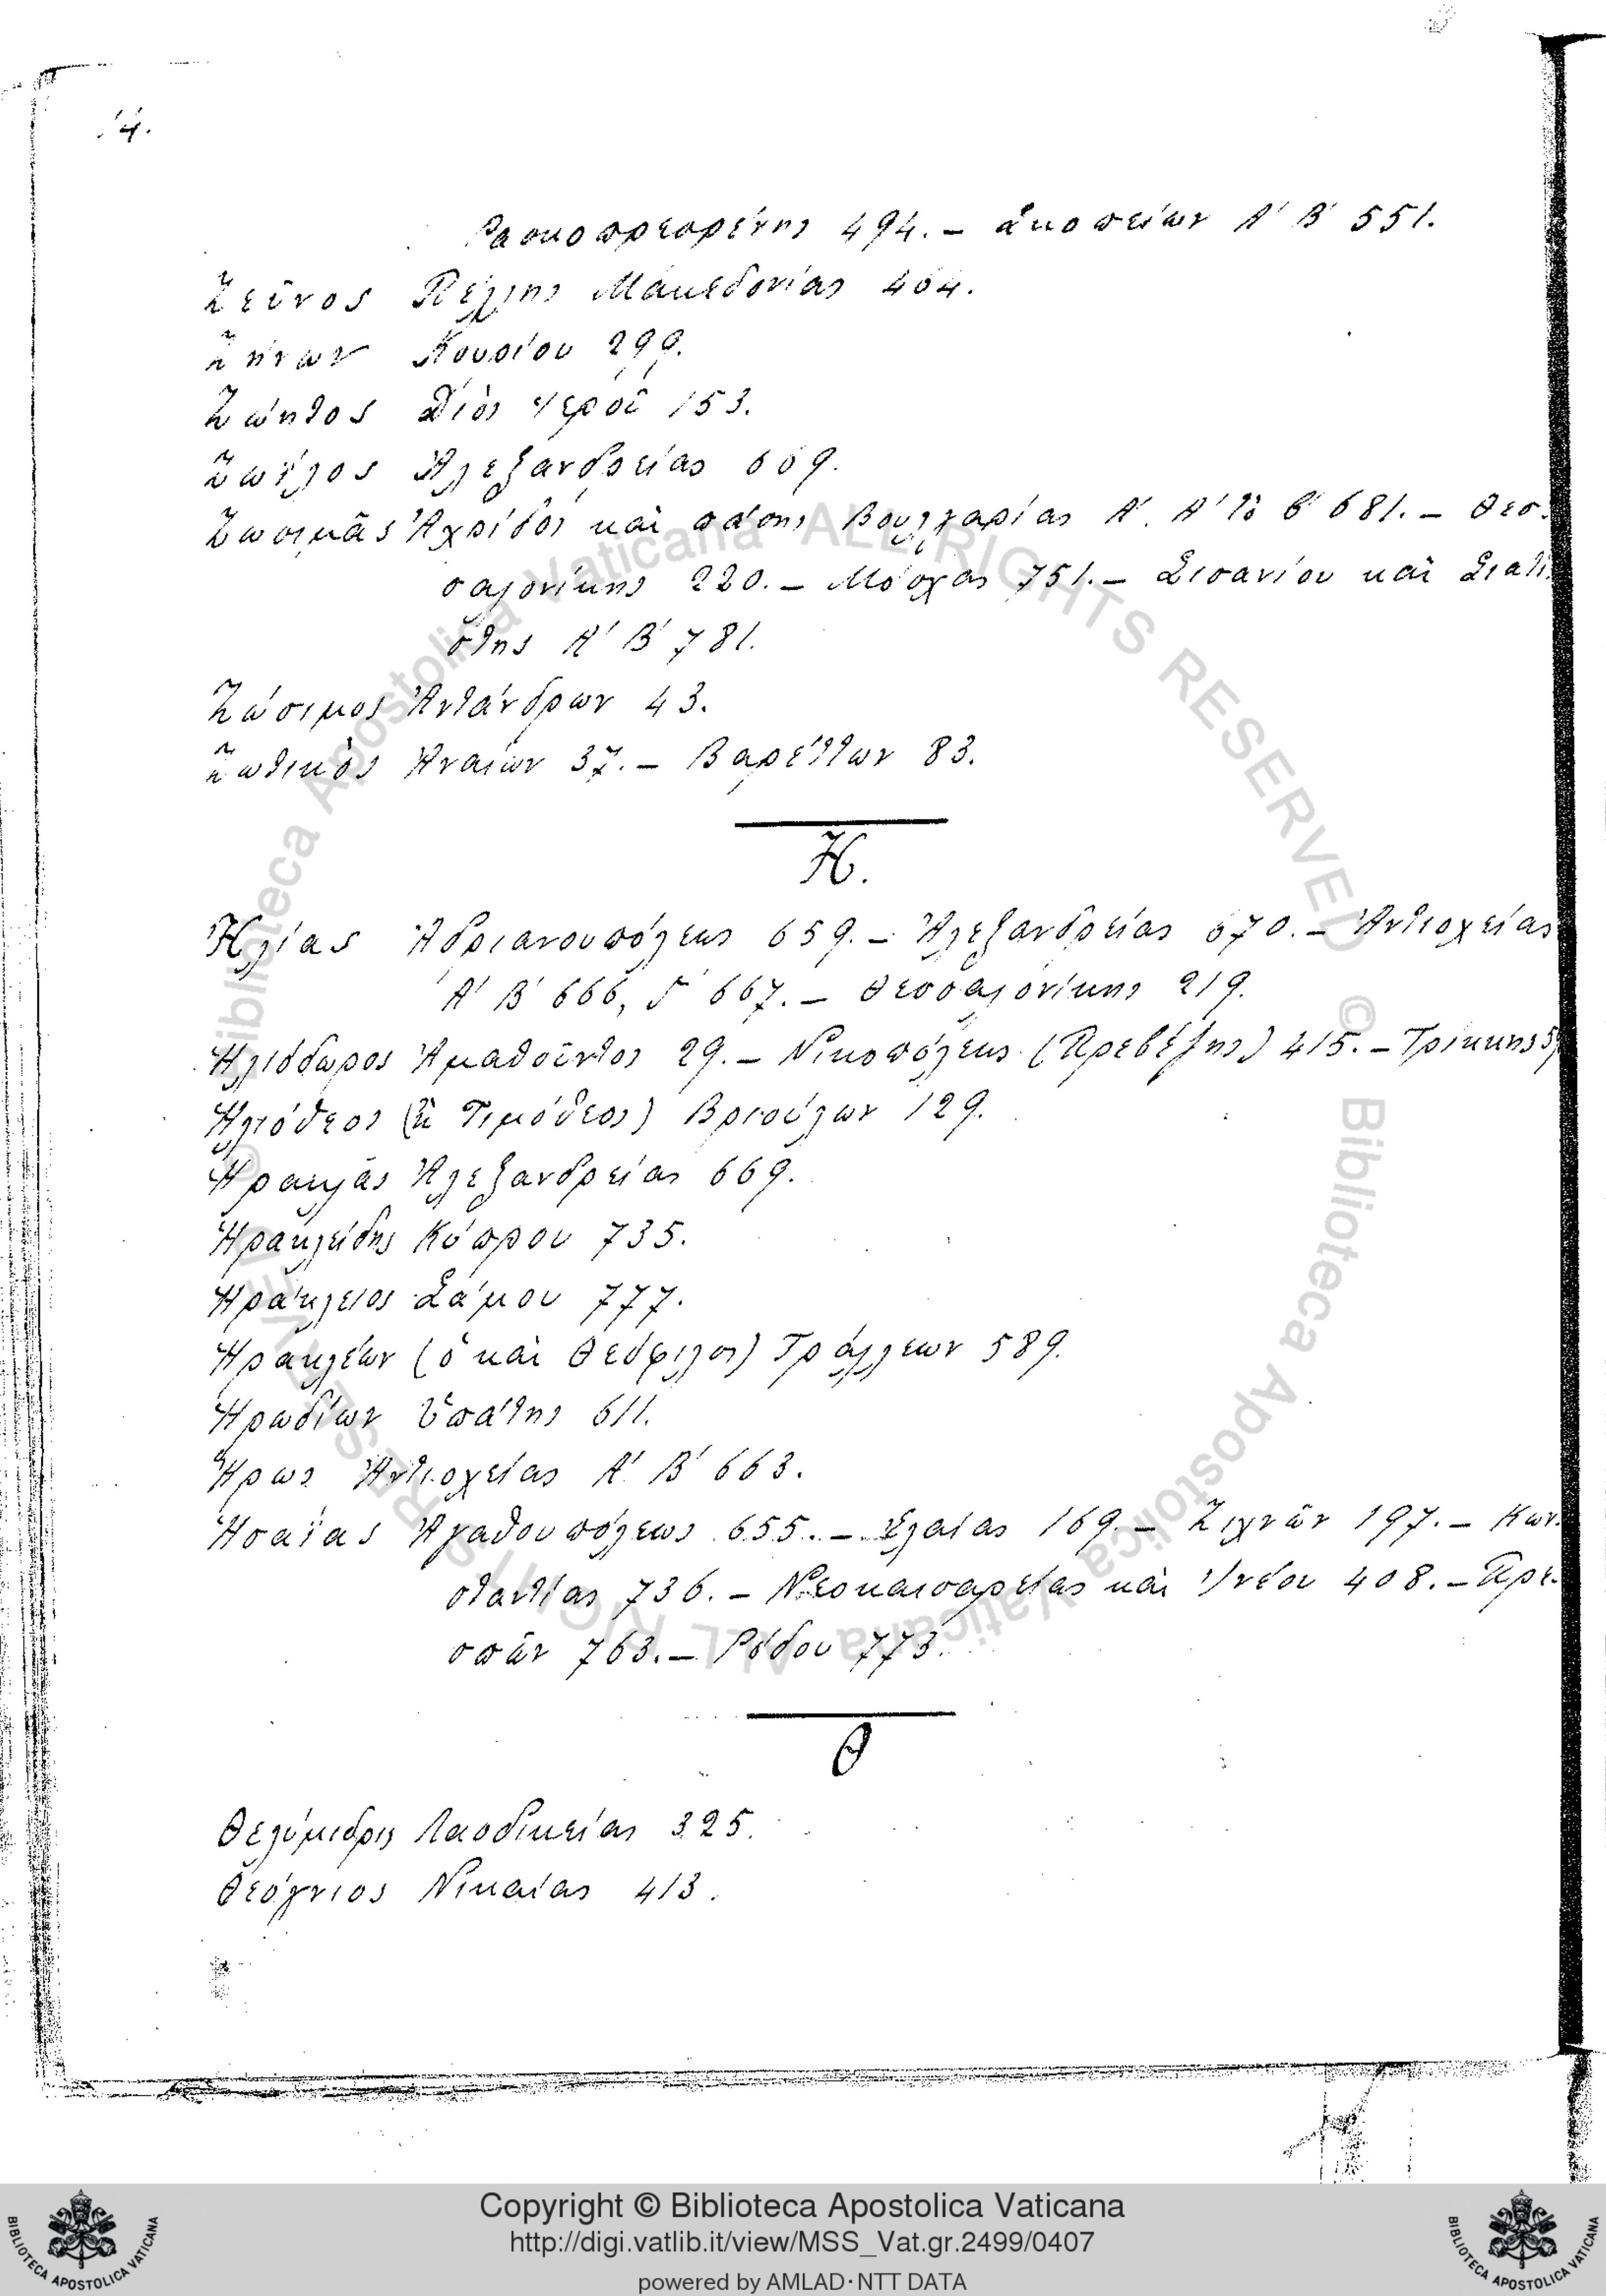 14.
Ρασκοπρεσρένης 494. – Σκοπείων Α' Β' 551.
Ζεῦνος Πέλλης Μακεδονίας 464.
Ζήνων Κουρίου 299.
Ζώητος Διὸς Ἱεροῦ 153.
Ζωΐλος Ἀλεξανδρείας 669.
Ζωσιμᾶς Ἀχρίδος καὶ πάσης Βουλγαρίας Α'. Α' Β' 681. – Θεσ-
σαλονίκης 220. – Μόσχας 751. – Σισανίου καὶ Σιατί-
στης Α' Β' 781.
Ζώσιμος Ἀντάνδρων 43.
Ζωτικὸς Ἀναίων 37. – Βαρέττων 83.
Η.
Ἠλίας Ἀδριανουπόλεως 659. – Ἀλεξανδρείας 670. – Ἀντιοχείας
Α' Β' 666, Γ' 667. – Θεσσαλονίκης 219.
Ἡλιόδωρος Ἀμαθοῦντος 29. – Νικοπόλεως (Πρεβέζης) 415. – Τρίκκης
Ἡλιόθεος (ἢ Τιμόθεος) Βριούλων 129.
Ἡρακλᾶς Ἀλεξανδρείας 669.
Ἡρακλείδης Κύπρου 735.
Ἡράκλειος Σάμου 777.
Ἡρακλέων (ὁ καὶ Θεόφιλος) Τράλλεων 589.
Ἡρωδίων Ὑπάτης 611.
Ἥρως Ἀντιοχείας Α' Β' 663.
Ἡσαΐας Ἀγαθουπόλεως 655. – Ἐλαίας 169. – Ζιχνῶν 197. – Κων-
σταντίας 736. – Νεοκαισαρείας καὶ Ἰνέου 408. – Πρε-
σπῶν 763. – Ρόδου 773.
Θ
Θελύμιδρις Λαοδικείας 325.
Θεόγνιος Νικαίας 413.
© Biblioteca Apostolica Vaticana ALL RIGHTS RESERVED
© Biblioteca Apostolica Vaticana ALL RIGHTS RESERVED
Copyright © Biblioteca Apostolica Vaticana
http://digi.vatlib.it/view/MSS_Vat.gr.2499/0407
powered by AMLAD·NTT DATA
BIBLIOTECA APOSTOLICA VATICANA
BIBLIOTECA APOSTOLICA VATICANA